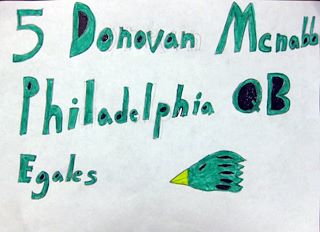 5 Donovan Mcnabb
Philadelphia QB
Egales